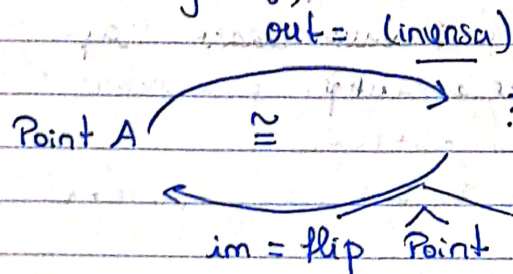 out = (inversa)
Point A ≅
in = flip Point